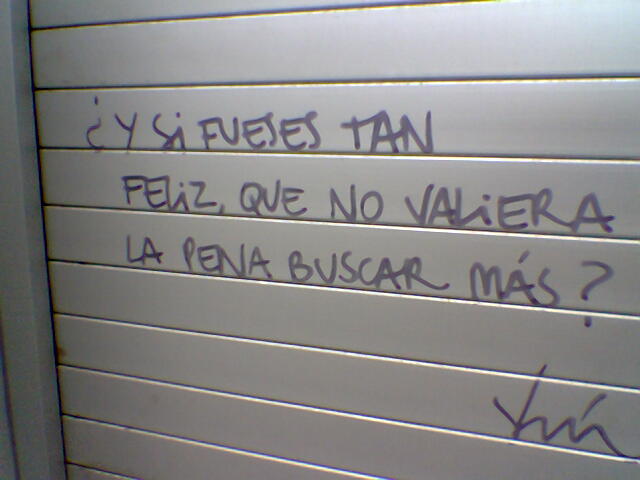 ¿Y Si FUESES TAN
FELiZ, QUE NO VALiERA
LA PENA BUSCAR MÁS?